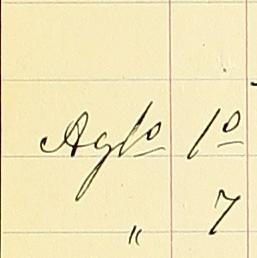 Agto 1o
" 7